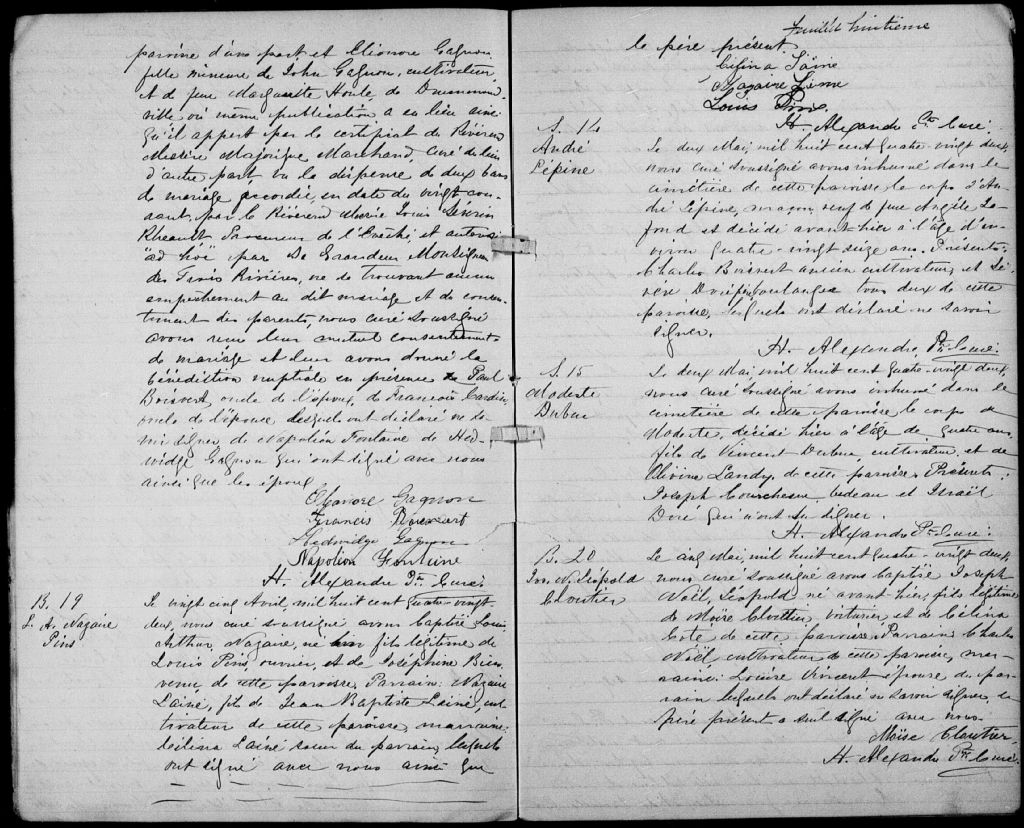 paroisse d'une part et Eléonore Gagnon
fille mineure de John Gagnon, cultivateur,
et de feue Marguerite Houle, de Drummond-
ville où même publication a eu lieu ainsi
qu'il appert par le certificat du Révérend
Messire Majorique Marchand, curé du lieu
d'autre part vu la dispense de deux bans
de mariage accordée, en date du vingt cou-
rant, par le Révérend Messire Louis Sévérin
Rheault Procureur de l'Evêché, et autorisé
ad hoc par Sa Grandeur Monseigneur
des Trois Rivières, ne se trouvant aucun
empêchement au dit mariage et du consen-
tement des parents, nous curé soussigné
avons reçu leur mutuel consentement
de mariage et leur avons donné la
bénédiction nuptiale en présence de Paul
Boisvert, oncle de l'époux, de François
oncle de l'épouse lesquels ont déclaré ne sa-
voir signer de Napoléon Fontaine de Hed-
widge Gagnon qui ont signé avec nous
ainsi que les époux
Gagnon
Francis
Hedwidge Gagnon
Napoléon Fontaine
H. Alexandre Ptre Curé.
B. 19
L. A. Nazaire
Pins
Le vingt cinq Avril, mil huit cent quatre-vingt-
deux, nous curé soussigné avons baptisé Louis
Arthur Nazaire, né hier fils légitime de
Louis Pins, ouvrier, et de Joséphine Bien-
venu, de cette paroisse, Parrain: Nazaire
Lainé, fils de Jean Baptiste Lainé, cul-
tivateur de cette paroisse, marraine:
Célina Lainé soeur du parrain, lesquels
ont signé avec nous ainsi que
Feuillet huitième
le père présent
Lainé
Nazaire
Louis Pins
H. Alexandre Ptre Curé.
S. 14
André
Lépine
Le deux Mai, mil huit cent quatre-vingt deux,
nous curé soussigné avons inhumé dans le
cimetière de cette paroisse le corps d'An-
dré Lépine, maçon, veuf de feue Angèle La-
fond et décédé avant-hier à l'âge d'en-
viron quatre-vingt seize ans. Présents:
Charles Boisvert ancien cultivateur, et
tous deux de cette
paroisse, lesquels ont déclaré ne savoir
signer.
H. Alexandre, Ptre Curé.
S. 15
Modeste
Dubuc
Le deux Mai, mil huit cent quatre-vingt deux,
nous curé soussigné avons inhumé dans le
cimetière de cette paroisse le corps de
Modeste, décédé hier à l'âge de quatre ans,
fils de Vincent Dubuc, cultivateur, et de
Olivine Landry de cette paroisse. Présents:
Joseph Courchesne bedeau et Israël
Doré qui n'ont su signer.
H. Alexandre Ptre Curé.
B. 20
Jos. N. Léopold
Cloutier
Le cinq Mai, mil huit cent quatre-vingt deux
nous curé soussigné avons baptisé Joseph
Noël, Léopold, né avant-hier, fils légitime
de Moïse Cloutier, voiturier, et de Célina
Coté de cette paroisse. Parrain: Charles
Noël cultivateur de cette paroisse, mar-
raine: Louise Vincent épouse du par-
rain lesquels ont déclaré ne savoir signer, le
père présent a seul signé avec nous
Moïse Cloutier
H. Alexandre Ptre Curé.